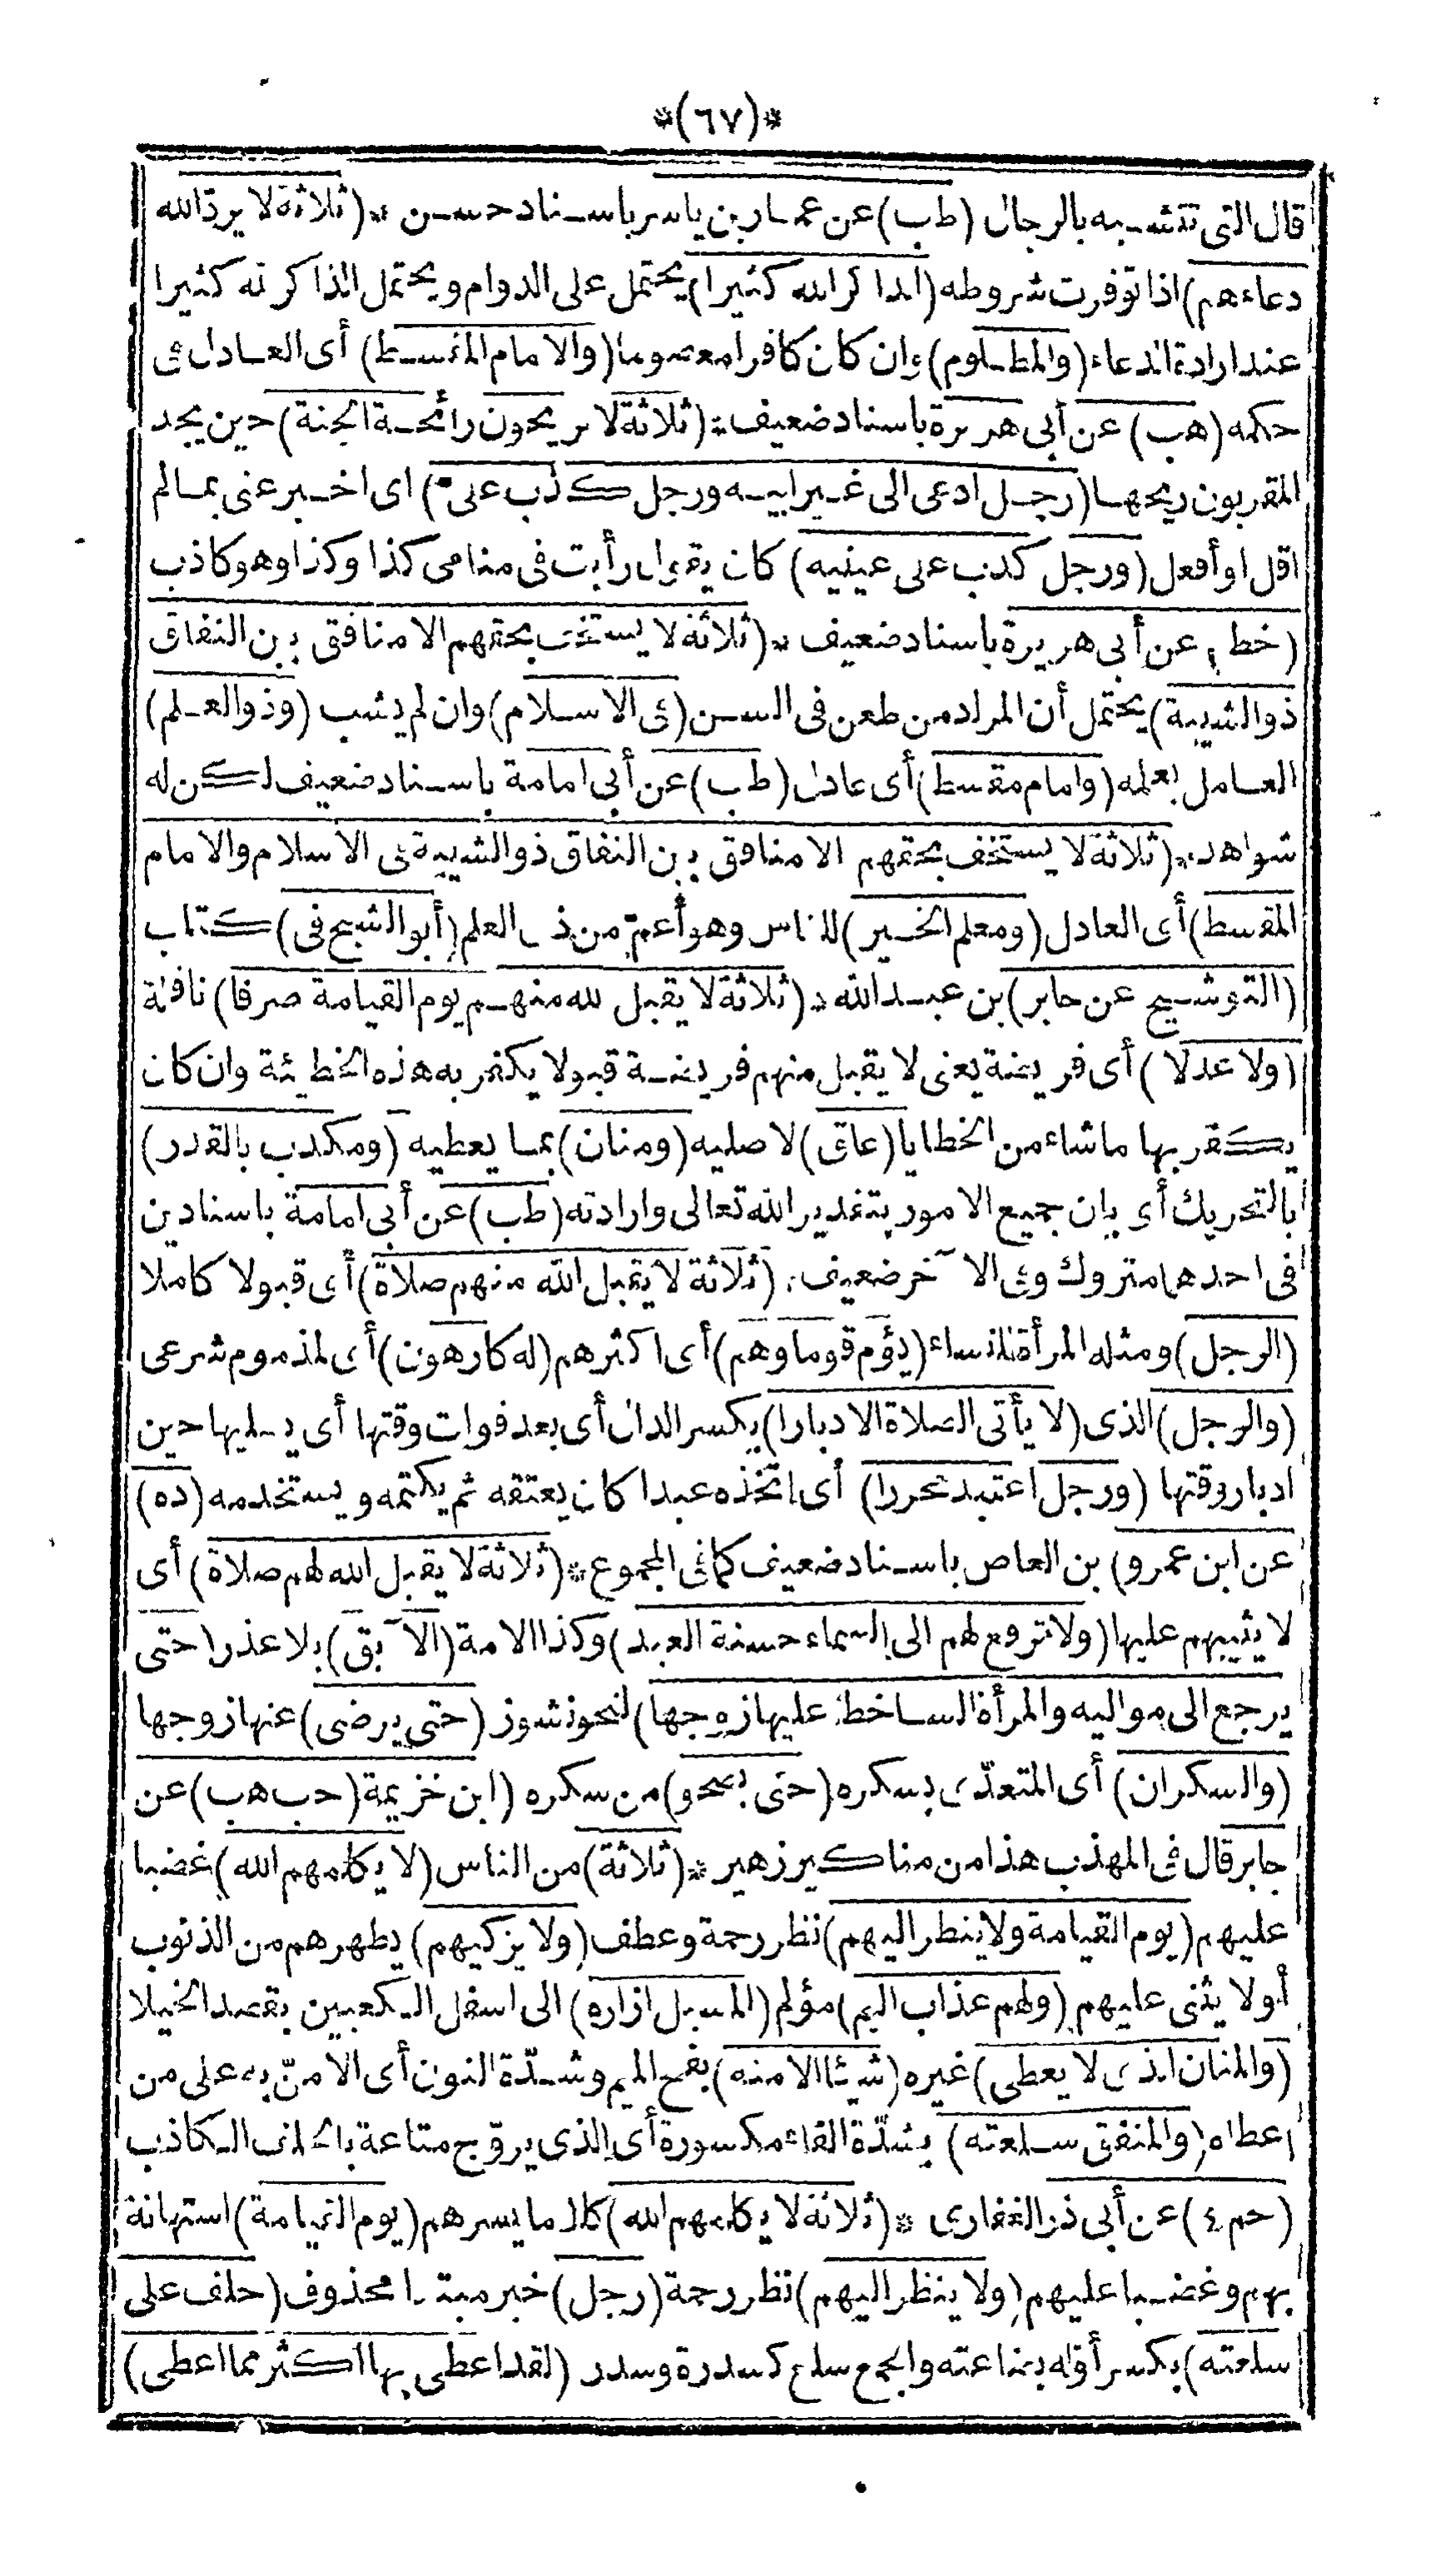 *(٦٧)*
قال التى تتشبه بالرجال (طب) عن عمار بن ياسر باسناد حسن * (ثلاثة لا يرد الله
دعاءهم) اذا توفرت شروطه (الذاكر الله كثيرا) يحتمل على الدوام ويحتمل الذاكر له كثيرا
عند ارادة الدعاء (والمظلوم) وان كان كافرا معصوما (والامام المقسط) أى العادل فى
حكمه (هب) عن أبى هريرة باسناد ضعيف * (ثلاثة لا يريحون رائحة الجنة) حين يجد
المقربون ريحها (رجل ادعى الى غير ابيه ورجل كذب علىّ) اى اخبر عنى بما لم
اقل او أفعل (ورجل كذب على عينيه) كان يقول رأيت فى منامى كذا وكذا وهو كاذب
(خط) عن أبى هريرة باسناد ضعيف * (ثلاثة لا يستخف بحقهم الا منافق بين النفاق
ذو الشيبة) يحتمل أن المراد من طعن فى السن (فى الاسلام) وان لم يشب (وذو العلم)
العامل بعلمه (وامام مقسط) أى عادل (طب) عن أبى امامة باسناد ضعيف لكن له
شواهد * (ثلاثة لا يستخف بحقهم الا منافق بين النفاق ذو الشيبة فى الاسلام والامام
المقسط) أى العادل (ومعلم الخير) للناس وهو أعمّ من ذى العلم (أبو الشيخ فى) كتاب
(التوشيح عن جابر) بن عبد الله * (ثلاثة لا يقبل الله منهم يوم القيامة صرفا) نافلة
(ولا عدلا) أى فريضة يعنى لا يقبل منهم فريضة قبولا يكفر به هذه الخطيئة وان كان
يكفر بها ما شاء من الخطايا (عاق) لاصليه (ومنان) بما يعطيه (ومكذب بالقدر)
بالتحريك أى بان جميع الامور بتقدير الله تعالى وارادته (طب) عن أبى امامة باسنادين
فى احدهما متروك وفى الآخر ضعيف * (ثلاثة لا يقبل الله منهم صلاة) أى قبولا كاملا
(الرجل) ومثله المرأة للنساء (يؤم قوما وهم) أى اكثرهم (له كارهون) أى لمذموم شرعى
(والرجل) الذى (لا يأتى الصلاة الا دبارا) بكسر الدال أى بعد فوات وقتها أى يصليها حين
ادبار وقتها (ورجل اعتبد محررا) أى اتخذه عبدا كان يعتقه ثم يكتمه ويستخدمه (ده)
عن ابن عمرو) بن العاص باسناد ضعيف كما فى المجموع * (ثلاثة لا يقبل الله لهم صلاة) أى
لا يثيبهم عليها (ولا ترفع لهم الى السماء حسنة العبد) وكذا الامة (الآبق) بلا عذر (حتى
يرجع الى مواليه والمرأة الساخط عليها زوجها) لنحو نشوز (حتى يرضى) عنها زوجها
(والسكران) أى المتعدّى بسكره (حتى يصحو) من سكره (ابن خزيمة (حب هب) عن
جابر قال فى المهذب هذا من مناكير زهير * (ثلاثة) من الناس (لا يكلمهم الله) غضبا
عليهم (يوم القيامة ولا ينظر اليهم) نظر رحمة وعطف (ولا يزكيهم) يطهرهم من الذنوب
أو لا يثنى عليهم (ولهم عذاب اليم) مؤلم (المسبل ازاره) الى اسفل الكعبين بقصد الخيلا
(والمنان الذى لا يعطى) غيره (شيئا الا منه) بفتح الميم وشدّة النون أى الا منّ به على من
اعطاه (والمنفق سلعته) بشدّة الفاء مكسورة أى الذى يروّج متاعه بالحلف الكاذب
(حم ٤) عن أبى ذر الغفارى * (ثلاثة لا يكلمهم الله) كلاما يسرهم (يوم القيامة) استهانة
بهم وغضبا عليهم (ولا ينظر اليهم) نظر رحمة (رجل) خبر مبتدا محذوف (حلف على
سلعته) بكسر أوله بضاعته والجمع سلع كسدرة وسدر (لقد اعطى بها اكثر مما اعطى)